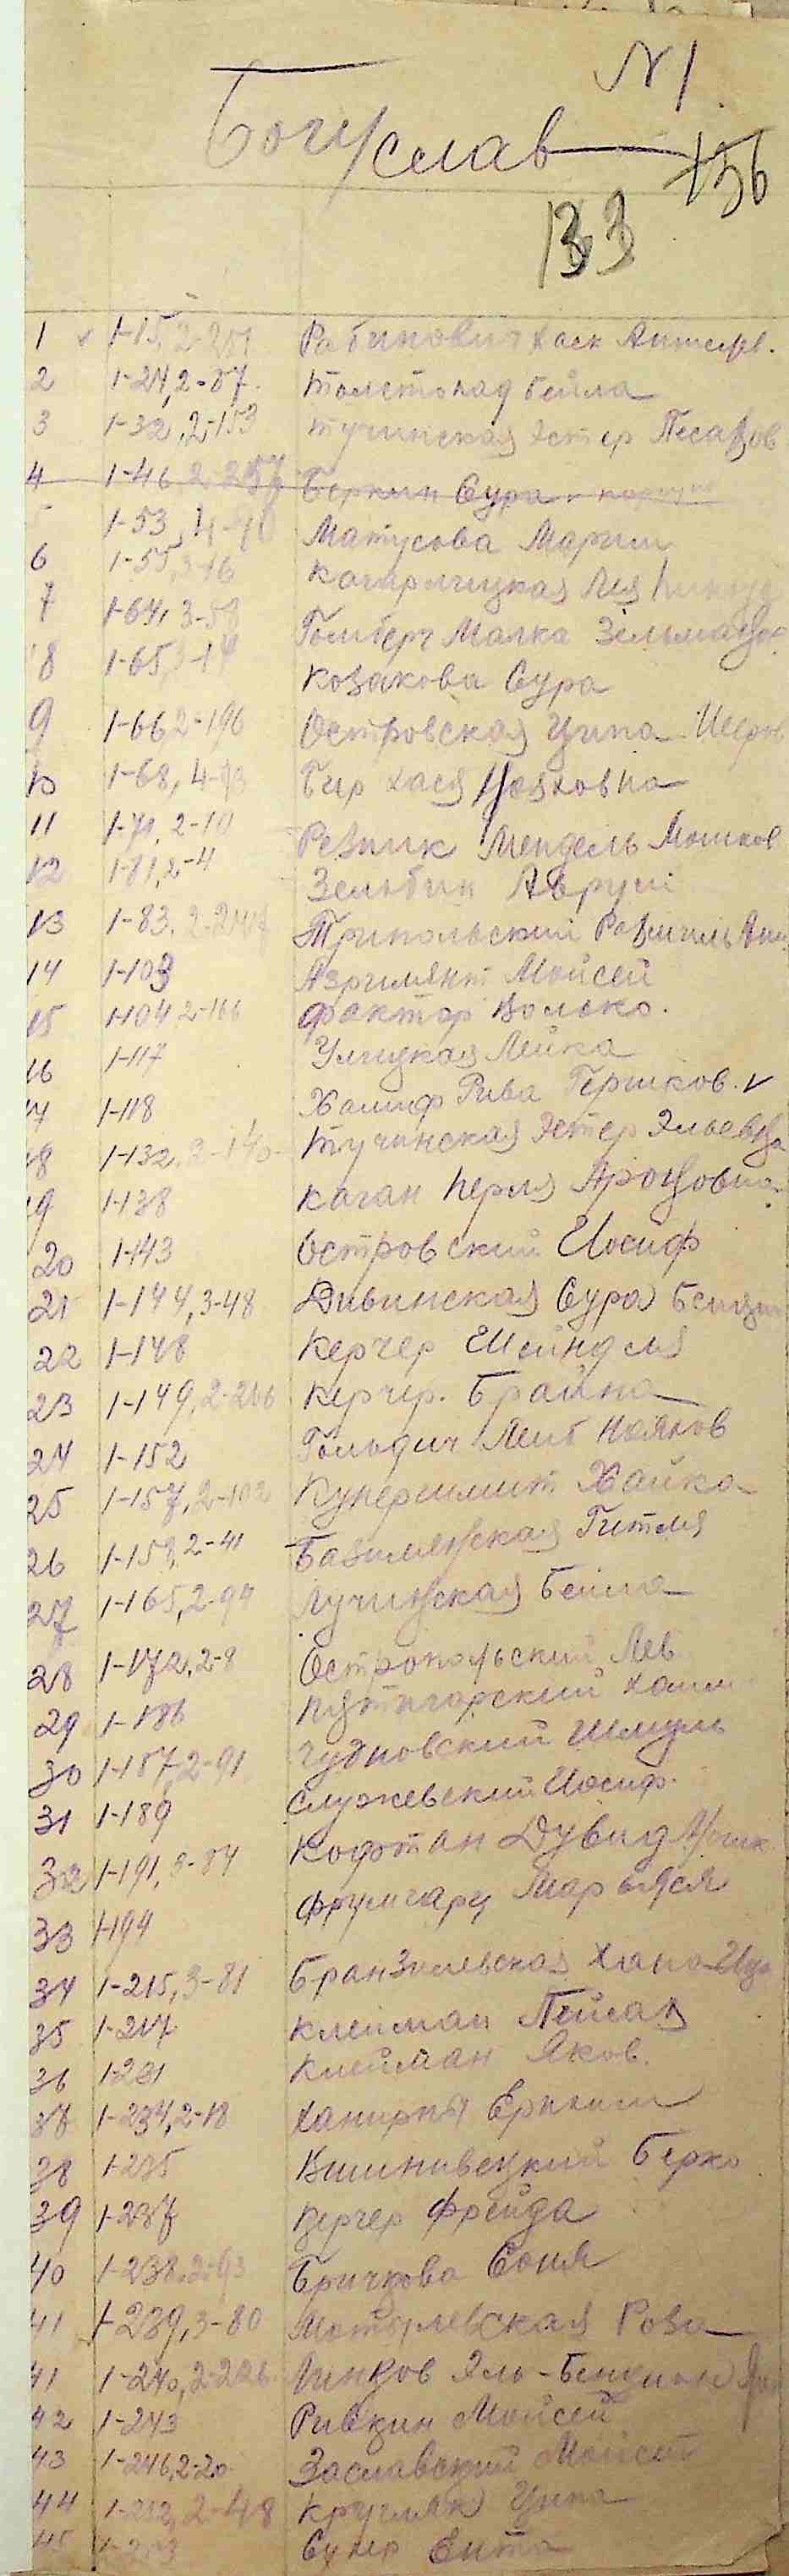 N 1.
Богуслав
156
133
1 v 1-15, 2-251 Рабинович Хаск
2 1-24, 2-87. Толстопад Бейла
3 1-32, 2-153 Тучинская Эстер
4 1-46 Беркин Сура
1-53, 4-40 Матусова Марим
6 1-55, 3-16 Кагарлицкая Лея
7 1-64, 3-58 Гомберг Малка
8 1-65, 3-14 Козакова Сура
9 1-66 2-196 Островская Ципа
10 1-68, 4-93 Бир Хася Нояховна
11 1-71, 2-10 Резник Мендель Мошков
12 1-81, 2-4 Зельбин Аврум
13 1-83. Трипольский
14 1-103 Азримянт Мойсей
15 1-104 2-166 Фактор Волько.
16 1-117 Улицкая Лейка
17 1-118 Халиф Рива Гершков. v
18 1-132, 2-140 Тучинская Эстер Эльевна
19 1-138 Каган Перля Ароновна
20 1-143 Островский Иосиф
21 1-144, 3-48 Дивинская Сура
22 1-148 Керчер Шейндля
23 1-149, 2-266 Керчер. Брайна
24 1-152 Гольдич Лейб Нояхов
25 1-157, 2-102 Купершмит Хайка
26 1-159, 2-41 Базилянская Гитля
27 1-165, 2-94 Лучинская Бейла
28 1-172, 2-8 Остропольский Лев
29 1-186 Пятигорский Хаим
30 1-187, 2-91 Чудновский Шмуль
31 1-189 Служевский Иосиф.
32 1-191, 3-84 Кофтан Дувид
33 1-194 Фрумгарц Марьяся
34 1-215, 3-81 Бранзилевская Хана
35 1-217 Клейман Пейсах
36 1-231 Клейман Яков.
37 1-234, 2-18 Ханирпы
38 1-235 Вишнивецкий Берко
39 1-237 Керчер Фрейда
40 1-238, 2-93 Бричкова Соня
41 1-239, 3-80 Мотылевская Роза
41 1-240, 2-226. Линков Эль-Бенцион
42 1-243 Ривкин Мойсей
43 1-246, 2-20 Заславский Мойсей
44 2-48 Кругляк Ципа
45 Сухер Ента